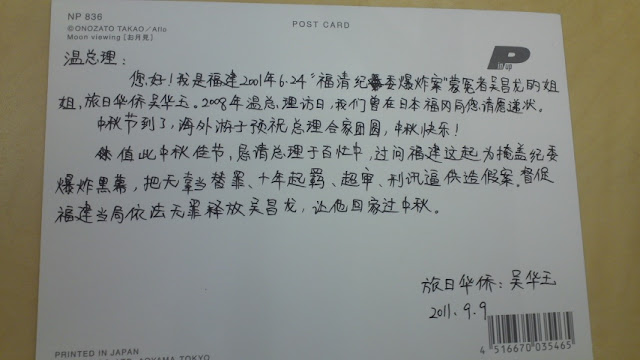 NP 836
©ONOZATO TAKAO/Aflo
Moon viewing [お月見]
POST CARD
P
温总理：
您好！我是福建2001年6.24“福清纪委爆炸案”蒙冤者吴昌龙的姐
姐，旅日华侨吴华玉。2008年温总理访日，我们曾在日本福冈向您请愿递状。
中秋节到了，海外游子预祝总理合家团圆，中秋快乐！
值此中秋佳节，恳请总理于百忙中，过问福建这起为掩盖纪委
爆炸黑幕，把无辜当替罪、十年超羁、超审、刑讯逼供造假案。督促
福建当局依法无罪释放吴昌龙，让他回家过中秋。
旅日华侨：吴华玉
2011.9.9
PRINTED IN JAPAN
AOYAMA TOKYO
4 516670 035465